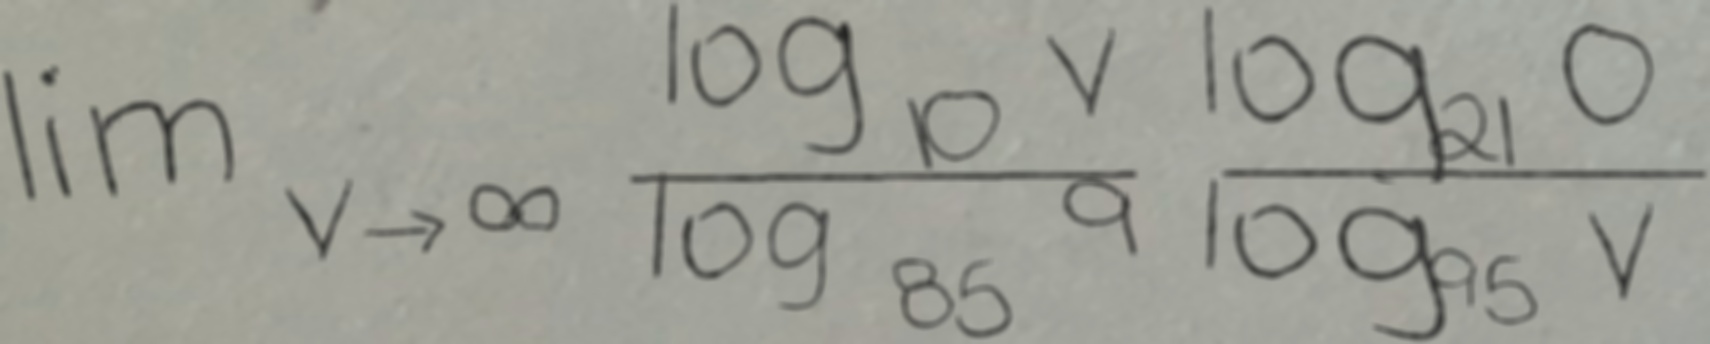 lim_{v→∞} \frac{log_{10} v}{log_{85} 9} \frac{log_{21} 0}{log_{95} v}